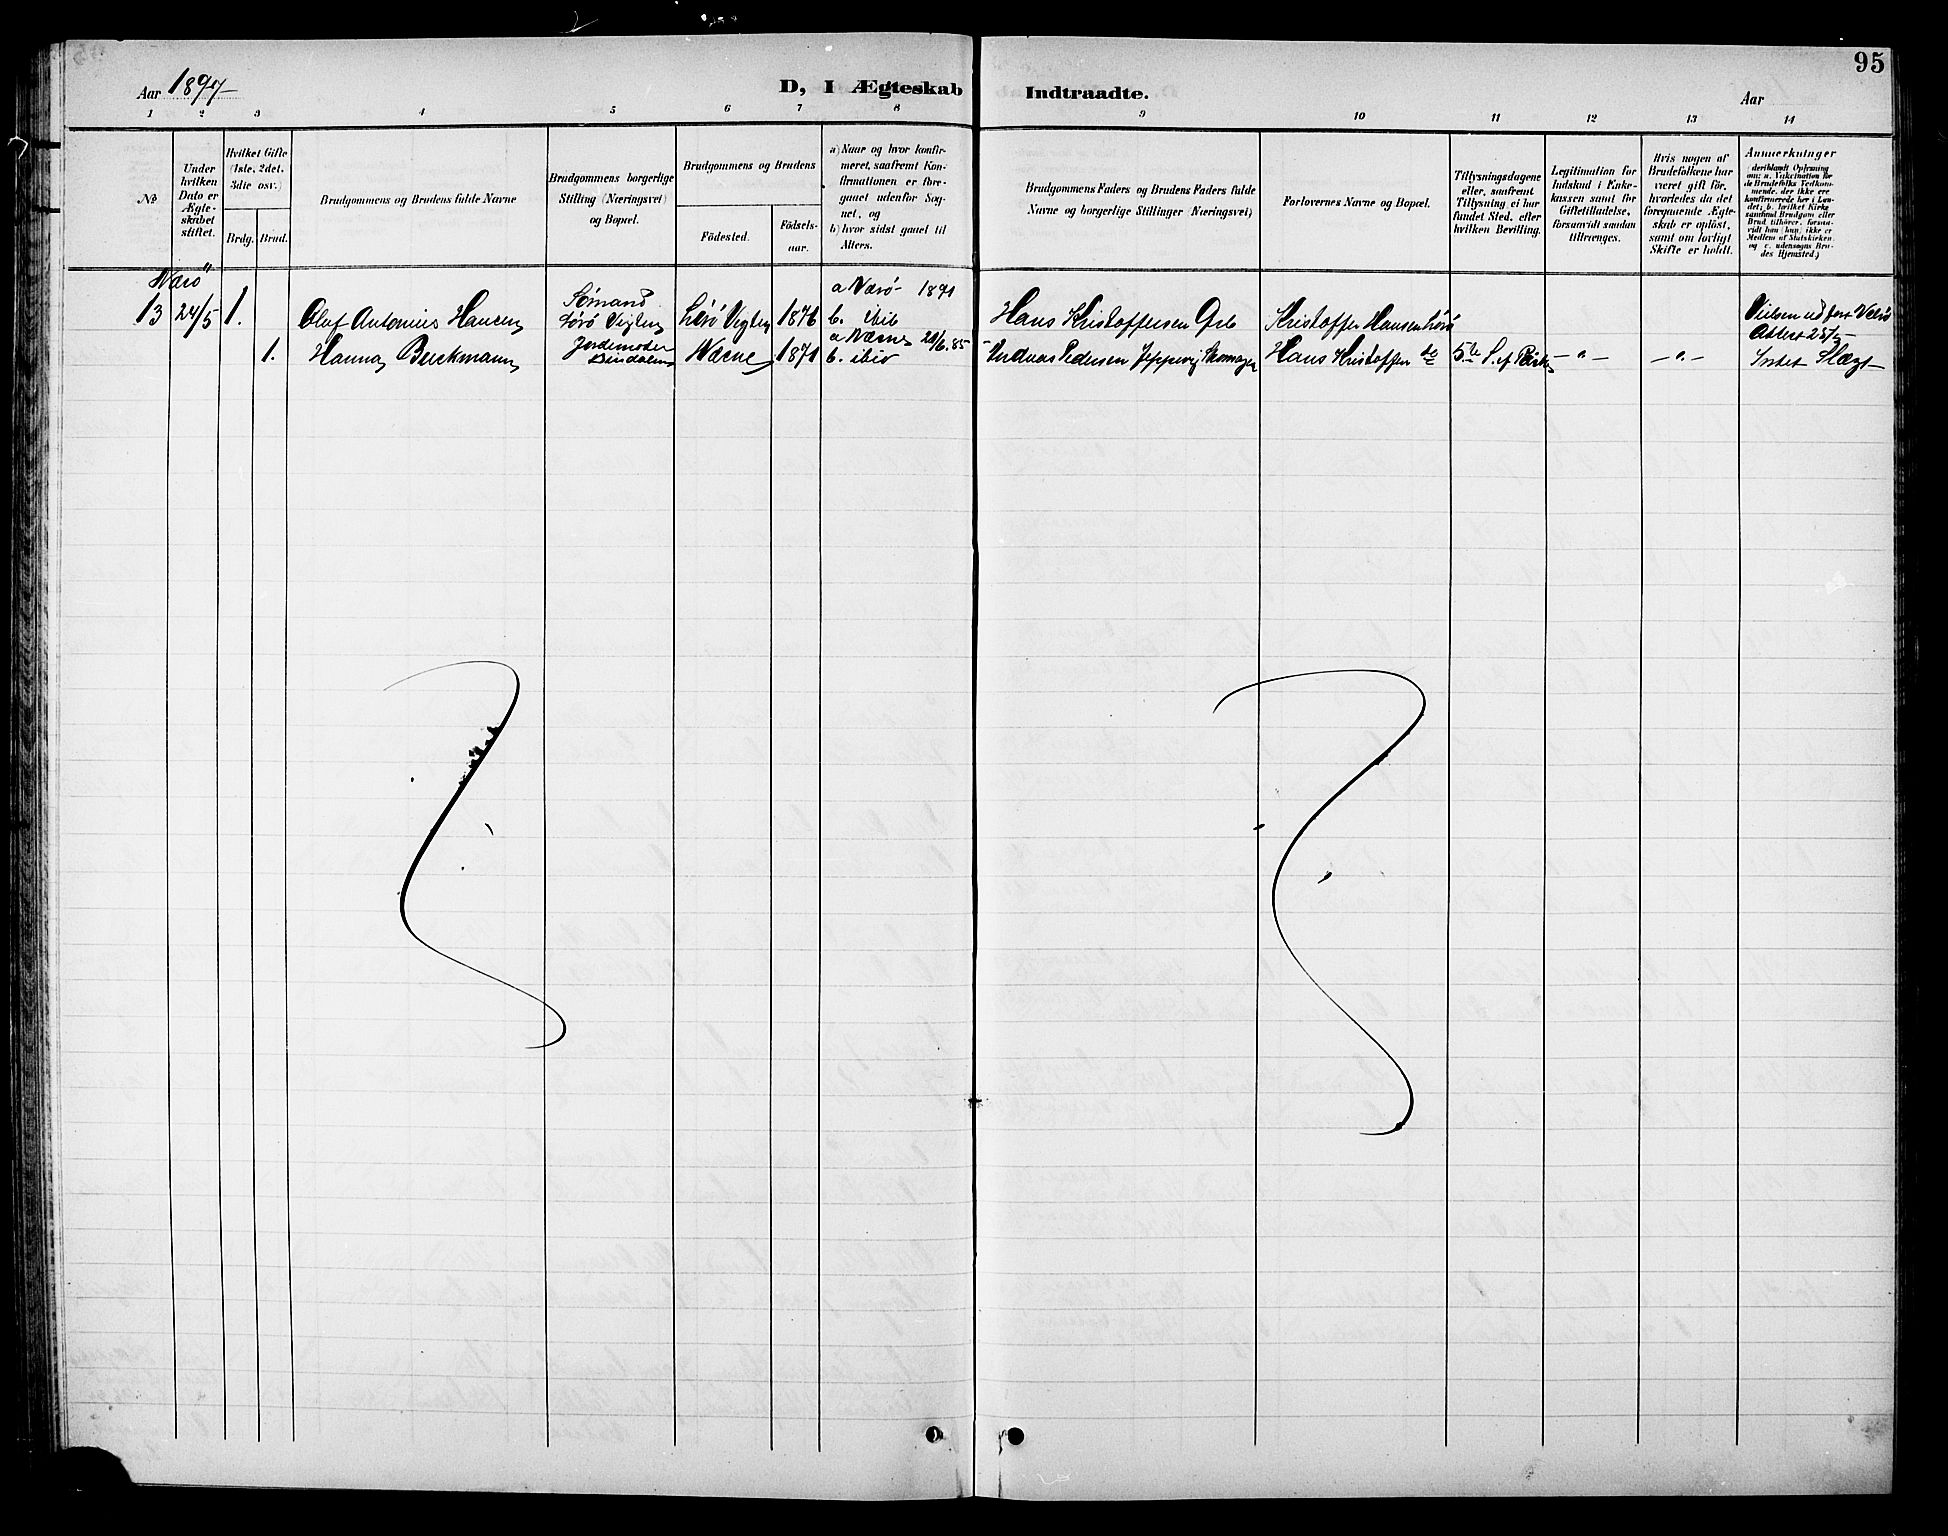 95
Aar 1897
D, I Ægteskab Indtraadte.
Aar
1 2 3 4 5 6 7 8 9 10 11 12 13 14
№
Under hvilken Dato er Ægteskabet stiftet.
Hvilket Gifte (1ste, 2det, 3die osv.)
Brdg. Brud.
Brudgommens og Brudens fulde Navne
Brudgommens borgerlige Stilling (Næringsvei) og Bopæl.
Brudgommens og Brudens
Fødested.
Födsels-aar.
a) Naar og hvor konfirmeret, saafremt Konfirmationen er foregaaet udenfor Sognet, og
b) hvor sidst gaaet til Alters.
Brudgommens Faders og Brudens Faders fulde Navne og borgerlige Stillinger (Næringsvei)
Forlovernes Navne og Bopæl.
Tillysningsdagene eller, saafremt Tillysning ei har fundet Sted, efter hvilken Bevilling.
Legitimation for Indskud i Enkekassen samt for Giftetilladelse, forsaavidt saadan tiltrænges.
Hvis nogen af Brudefolkene har været gift för, hvorledes da det foregaaende Ægteskab er oplöst, samt om lovligt Skifte er holdt.
Anmærkninger
(deriblandt Oplysning om: a. Vakcination for de Brudefolks Vedkommende, der ikke ere konfirmerede her i Landet; b. hvilket Kirkesamfund Brudgom eller Brud tilhörer, forsaavidt han (hun) ikke er Medlem af Statskirken, og c. udensogns Brudes Hjemsted.)
Værö
13 24/5 1. Olaf Antonius Hansen Sömand Sörö Vigten Sörö Vigten 1876 a Værö 1891 b. ibid Hans Kristoffersen Gsb Kristoffer Hansen Sörö
1. Hanna Berckmann Jordemoder Bindalen Værne 1871 a Værnes 21/6.85 b. ibid Andreas Pedersen Hans Kristoffer do 5te S. ef Paaske — " — — " — Intet Slægt—